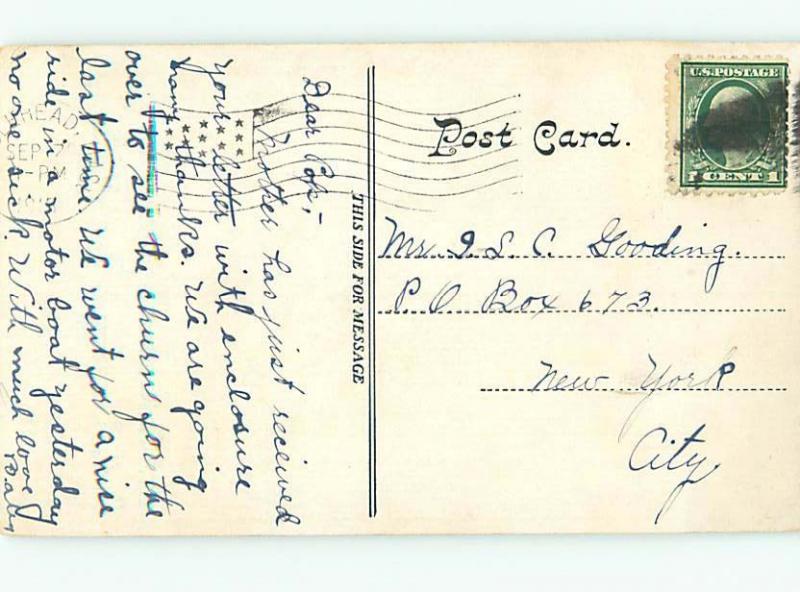 Dear Pop,-
Mother has just received
your letter with enclosure
many thanks. We are going
over to see the churn for the
last time. We went for a nice
ride in a motor boat yesterday
no one sick. With much love
THIS SIDE FOR MESSAGE
Post Card.
U.S. POSTAGE
1 CENT 1
HEAD,
SEP 7
PM
Mr. I. S. C. Gooding.
P O Box 673.
New York
City